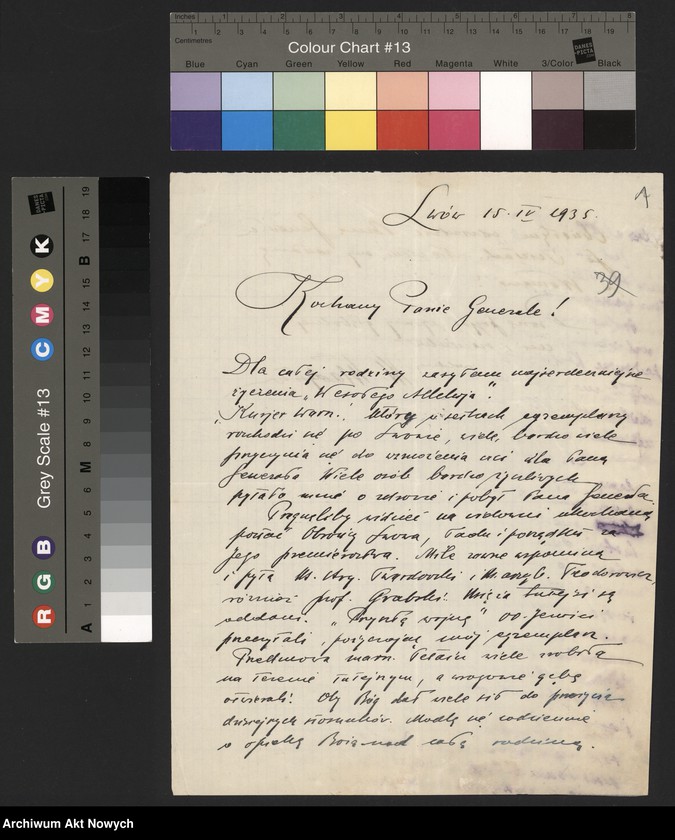 Inches 1 2 3 4 5 6 7 8
Centimetres 1 2 3 4 5 6 7 8 9 10 11 12 13 14 15 16 17 18 19
Colour Chart #13
DANES PICTA
Blue Cyan Green Yellow Red Magenta White 3/Color Black
Grey Scale #13
R G B C M Y K
A 1 2 3 4 5 6 M 8 9 10 11 12 13 14 15 B 17 18 19
1
39
Lwów 15. IV 1935.
Kochany Panie Generale!
Dla całej rodziny zasyłam najserdeczniejsze
życzenia „Wesołego Alleluja".
„Kurjer Warsz." który w setkach egzemplarzy
rozchodzi się po Lwowie, wiele, bardzo wiele
przyczynia się do wzmożenia czci dla Pana
Generała. Wiele osób bardzo życzliwych
pytało mnie o zdrowie i pobyt Pana Generała.
Pragnęliby widzieć na widowni ukochaną
postać Obrońcy Lwowa, ładu i porządku za
Jego premierostwa. Mile zawsze wspomina
i pyta Ks. Arc. Twardowski i Ks. arcyb. Teodorowicz,
również prof. Grabski. Księża tutejsi są
oddani. „Przyszłą wojnę" OO. Jezuici
przeczytali, pożyczając mój egzemplarz.
Przedmowa marsz. Petain wiele zrobiła
na terenie tutejszym, a wrogowie gębę
otwierali! Oby Bóg dał wiele sił do przeżycia
dzisiejszych stosunków. Modlę się codziennie
o opiekę Bożą nad całą rodziną.
Archiwum Akt Nowych